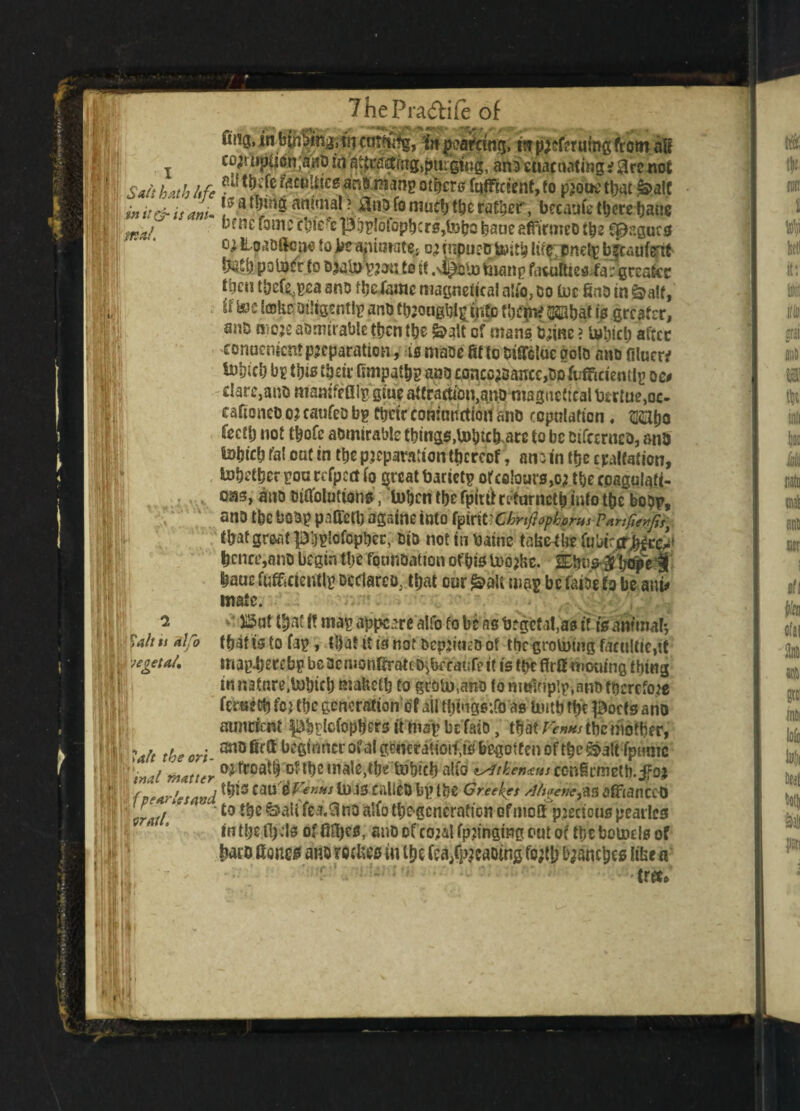 The Practise of
sing, in binding, in cutting, in pearcing, in preseruing from all
corruption, and in attracting, purging, and euacuating? Are not
all these faculties and many others sufficient, to proue that Salt
is a thing animal? And so much the rather, because there haue
bene some chiefe Phylosophers, who haue affirmed the Magnes
or Loadstone to be animate, or inpued with life, onely because it
hath power to draw yron to it. How many faculties far greater
then these, yea and the same magnetical also, do we find in Salt,
if we looke diligently and throughly into them? What is greater,
and more admirable then the Salt of mans vrine? which after
conuenient preparation, is made fit to dissolue gold and siluer?
which by this their simpathy and concordance, do sufficiently de-
clare, and manifestly giue attraction, and magnetical vertue, oc-
casioned or caused by their coniunction and copulation. Who
seeth not those admirable things, which are to be discerned, and
which fal out in the preparation thereof, and in the exaltation,
whether you respect so great variety of colours, or the coagulati-
ons, and dissolutions, when the spirit returneth into the body,
and the body passeth againe into spirit? Christophorus Parisiensis,
that great Phylosopher, did not in vaine take the subiect here-
hence, and begin the foundation of his worke. Thus I hope I
haue sufficiently declared, that our Salt may be saide to be ani-
mate.
But that it may appeare also so be as vegetal, as it is animal;
that is to say, that it is not depriued of the growing facultie, it
may hereby be demonstrated, because it is the first mouing thing
in nature, which maketh to grow, and to multiply, and therefore
serueth for the generation of all things: so as with the Poets and
auncient Phylosophers it may be said, that Venus the mother,
and first beginner of al generation, is begotten of the Salt spume
or froath of the male, the which also Athenæus confirmeth. For
this cause Venus was called by the Greekes Aligene, as affianced
to the Salt sea. And also the generation of most precious pearles
in the shels of fishes, and of coral springing out of the bowels of
hard stones and rockes in the sea, spreading forth branches like a
tree.
1
Salt hath life
in it & is ani-
mal.
2
Salt is also
vegetal.
Salt the ori-
ginal matter
of pearles and